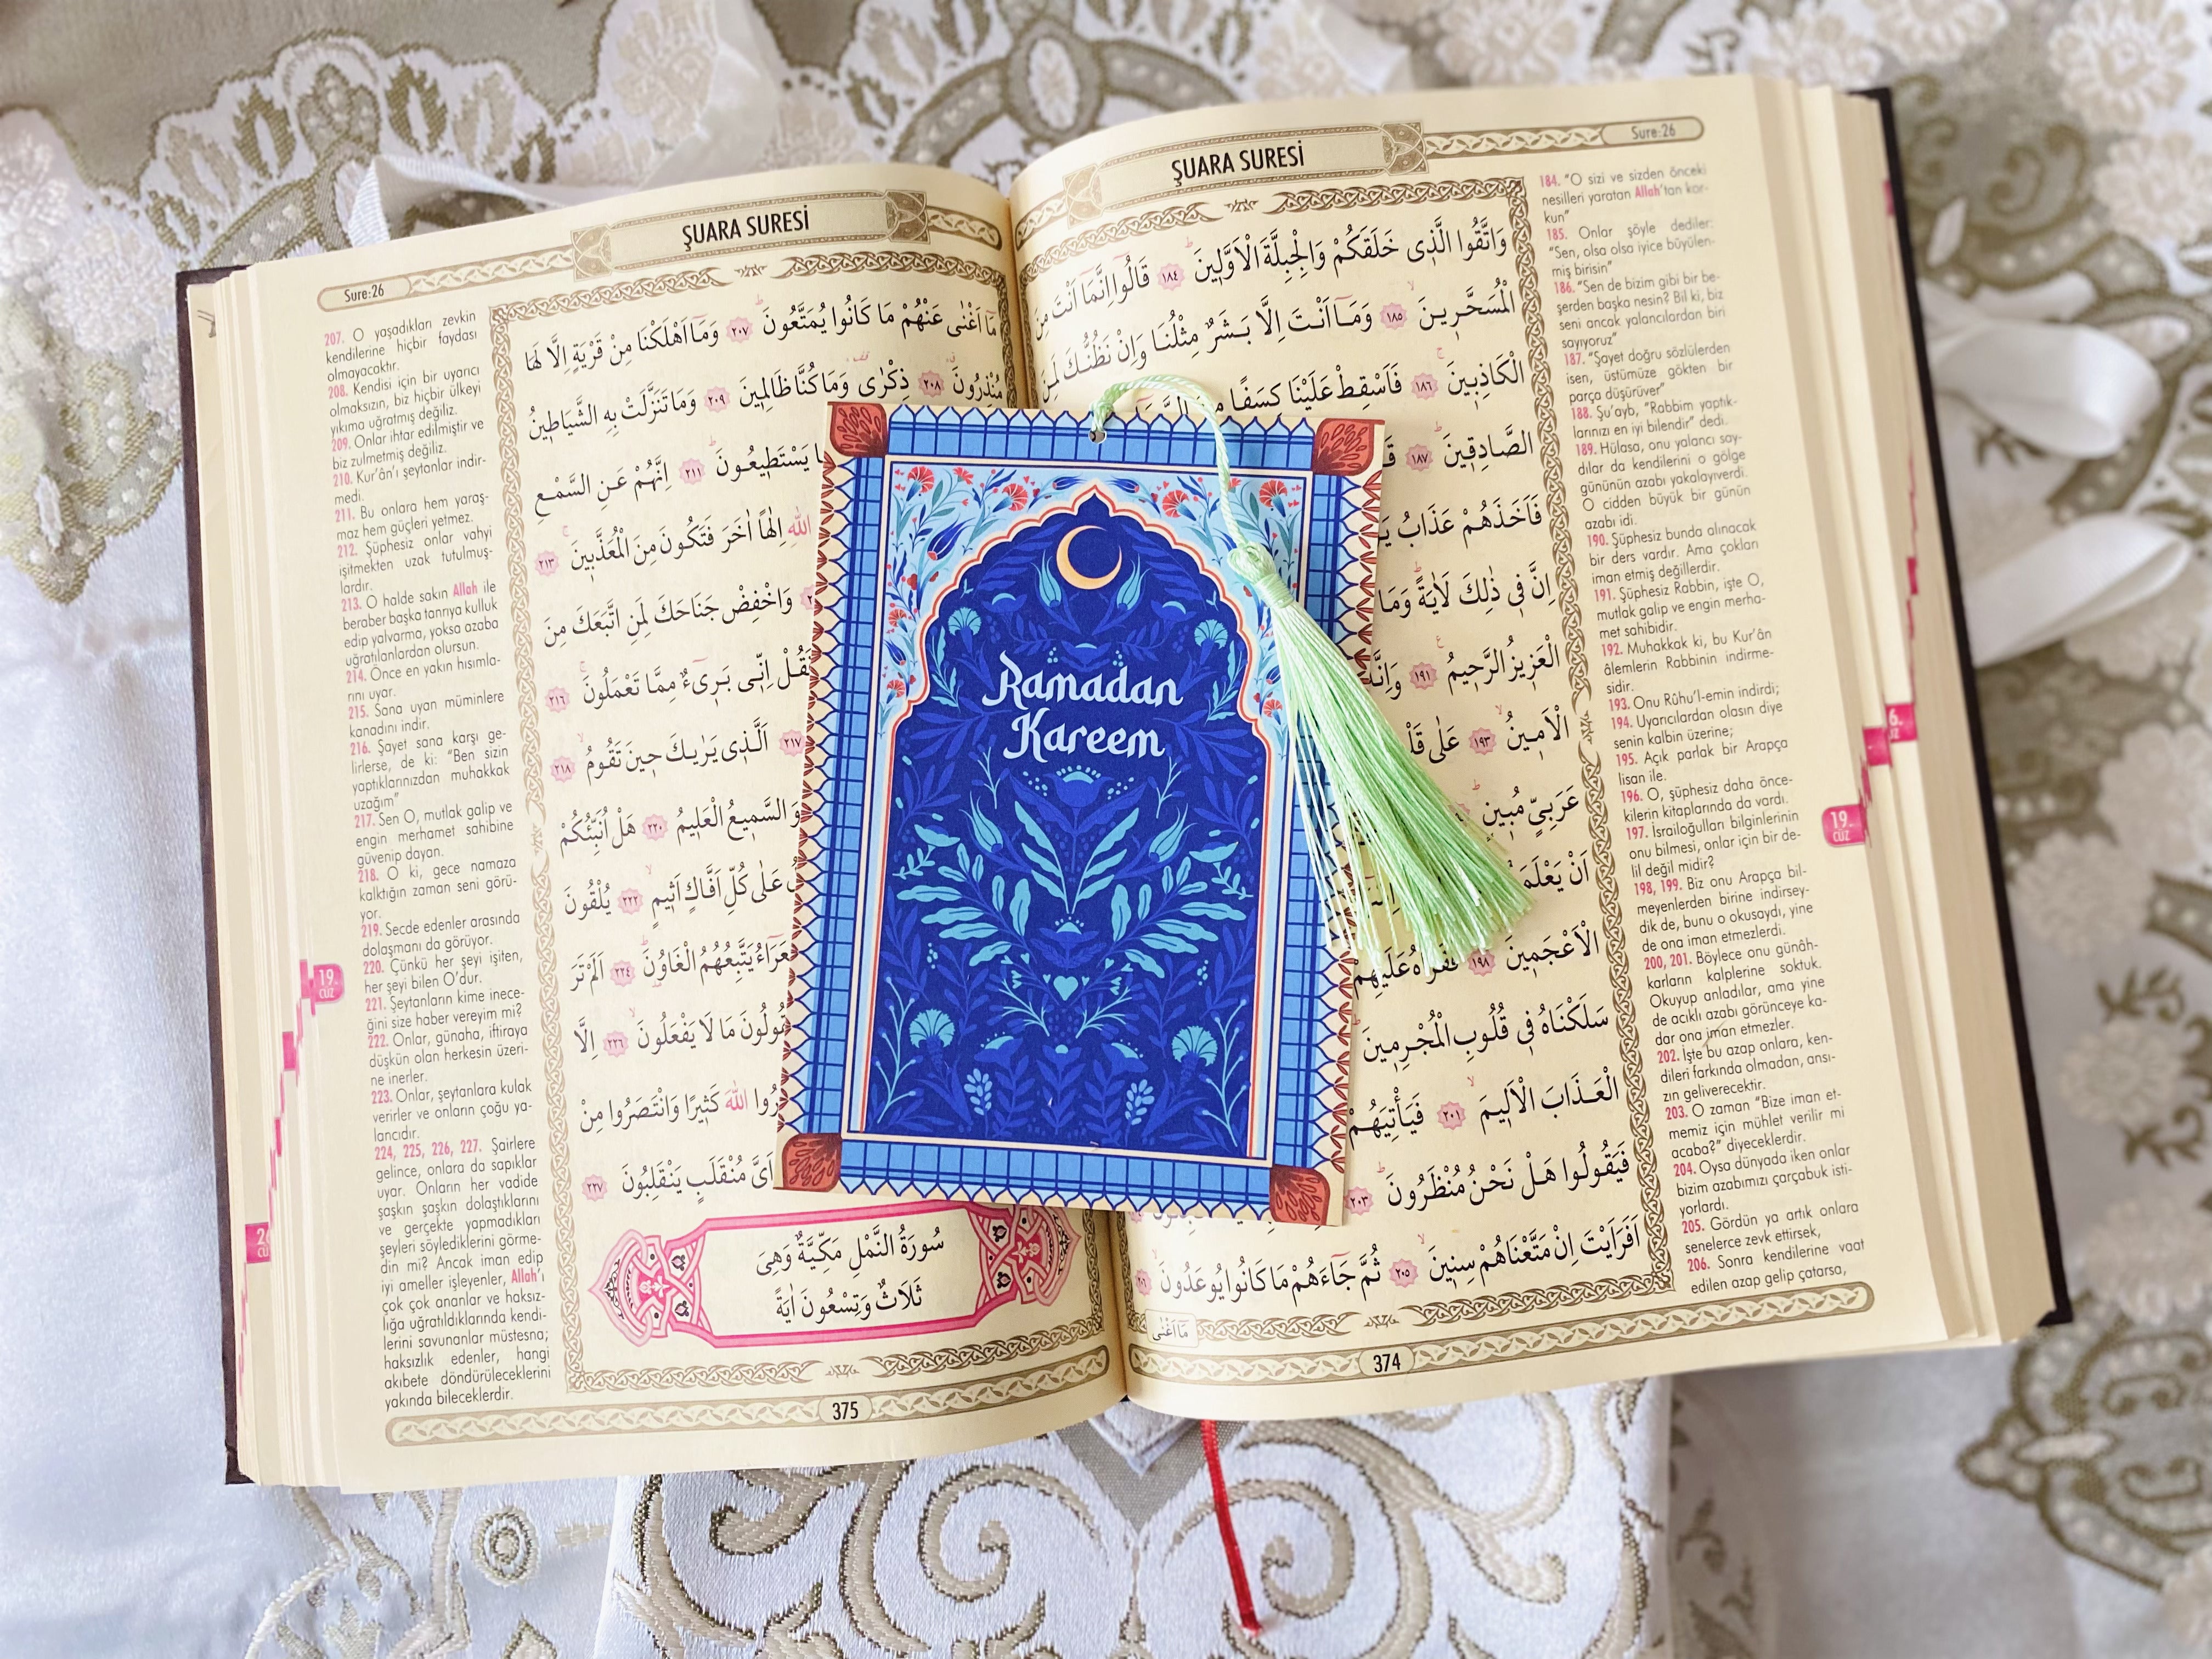 ŞUARA SURESİ
Sure:26
وَاتَّقُوا الَّذ۪ي خَلَقَكُمْ وَالْجِبِلَّةَ الْاَوَّل۪ينَ ١٨٤ قَالُٓوا اِنَّمَٓا اَنْتَ مِنَ
الْمُسَحَّر۪ينَ ١٨٥ وَمَٓا اَنْتَ اِلَّا بَشَرٌ مِثْلُنَا وَاِنْ نَظُنُّكَ لَمِنَ
الْكَاذِب۪ينَ ١٨٦ فَاَسْقِطْ عَلَيْنَا كِسَفًا
الصَّادِق۪ينَ ١٨٧
فَاَخَذَهُمْ عَذَابُ
اِنَّ ف۪ي ذٰلِكَ لَاٰيَةً وَمَا
الْعَز۪يزُ الرَّح۪يمُ ١٩١
الْاَم۪ينُ ١٩٣ عَلٰى
عَرَبِيٍّ مُب۪ينٍ
اَنْ يَعْلَمَ
الْاَعْجَم۪ينَ ١٩٨ فَقَرَاَهُ عَلَيْهِمْ
سَلَكْنَاهُ ف۪ي قُلُوبِ الْمُجْرِم۪ينَ
الْعَذَابَ الْاَل۪يمَ ٢٠١ فَيَأْتِيَهُمْ
فَيَقُولُوا هَلْ نَحْنُ مُنْظَرُونَ ٢٠٣
اَفَرَاَيْتَ اِنْ مَتَّعْنَاهُمْ سِن۪ينَ ٢٠٥ ثُمَّ جَٓاءَهُمْ مَا كَانُوا يُوعَدُونَ
مَٓا اَغْنٰى
184. “O sizi ve sizden önceki
nesilleri yaratan Allah’tan kor-
kun”
185. Onlar şöyle dediler:
“Sen, olsa olsa iyice büyülen-
miş birisin”
186. “Sen de bizim gibi bir be-
şerden başka nesin? Bil ki, biz
seni ancak yalancılardan biri
sayıyoruz”
187. “Şayet doğru sözlülerden
isen, üstümüze gökten bir
parça düşürüver”
188. Şu’ayb, “Rabbim yaptık-
larınızı en iyi bilendir” dedi.
189. Hülasa, onu yalancı say-
dılar da kendilerini o gölge
gününün azabı yakalayıverdi.
O cidden büyük bir günün
azabı idi.
190. Şüphesiz bunda alınacak
bir ders vardır. Ama çokları
iman etmiş değillerdir.
191. Şüphesiz Rabbin, işte O,
mutlak galip ve engin merha-
met sahibidir.
192. Muhakkak ki, bu Kur’ân
âlemlerin Rabbinin indirme-
sidir.
193. Onu Rûhu’l-emin indirdi;
194. Uyarıcılardan olasın diye
senin kalbin üzerine;
195. Açık parlak bir Arapça
lisan ile.
196. O, şüphesiz daha önce-
kilerin kitaplarında da vardı.
197. İsrailoğulları bilginlerinin
onu bilmesi, onlar için bir de-
lil değil midir?
198, 199. Biz onu Arapça bil-
meyenlerden birine indirsey-
dik de, bunu o okusaydı, yine
de ona iman etmezlerdi.
200, 201. Böylece onu günâh-
karların kalplerine soktuk.
Okuyup anladılar, ama yine
de acıklı azabı görünceye ka-
dar ona iman etmezler.
202. İşte bu azap onlara, ken-
dileri farkında olmadan, ansı-
zın geliverecektir.
203. O zaman “Bize iman et-
memiz için mühlet verilir mi
acaba?” diyeceklerdir.
204. Oysa dünyada iken onlar
bizim azabımızı çarçabuk isti-
yorlardı.
205. Gördün ya artık onlara
senelerce zevk ettirsek,
206. Sonra kendilerine vaat
edilen azap gelip çatarsa,
19.
CÜZ
374
ŞUARA SURESİ
Sure:26
مَٓا اَغْنٰى عَنْهُمْ مَا كَانُوا يُمَتَّعُونَ ٢٠٧ وَمَٓا اَهْلَكْنَا مِنْ قَرْيَةٍ اِلَّا لَهَا
مُنْذِرُونَ ٢٠٨ ذِكْرٰى وَمَا كُنَّا ظَالِم۪ينَ ٢٠٩ وَمَا تَنَزَّلَتْ بِهِ الشَّيَاط۪ينُ
يَسْتَط۪يعُونَ ٢١١ اِنَّهُمْ عَنِ السَّمْعِ
اللّٰهِ اِلٰهًا اٰخَرَ فَتَكُونَ مِنَ الْمُعَذَّب۪ينَ ٢١٣
وَاخْفِضْ جَنَاحَكَ لِمَنِ اتَّبَعَكَ مِنَ
فَقُلْ اِنّ۪ي بَر۪ٓيءٌ مِمَّا تَعْمَلُونَ ٢١٦
٢١٧ اَلَّذ۪ي يَرٰيكَ ح۪ينَ تَقُومُ ٢١٨
السَّم۪يعُ الْعَل۪يمُ ٢٢٠ هَلْ اُنَبِّئُكُمْ
عَلٰى كُلِّ اَفَّاكٍ اَث۪يمٍ ٢٢٢ يُلْقُونَ
يَتَّبِعُهُمُ الْغَاوُ۫نَ ٢٢٤ اَلَمْ تَرَ
مَا لَا يَفْعَلُونَ ٢٢٦ اِلَّا
اللّٰهَ كَث۪يرًا وَانْتَصَرُوا مِنْ
اَيَّ مُنْقَلَبٍ يَنْقَلِبُونَ ٢٢٧
سُورَةُ النَّمْلِ مَكِّيَّةٌ وَهِيَ
ثَلَاثٌ وَتِسْعُونَ اٰيَةً
207. O yaşadıkları zevkin
kendilerine hiçbir faydası
olmayacaktır.
208. Kendisi için bir uyarıcı
olmaksızın, biz hiçbir ülkeyi
yıkıma uğratmış değiliz.
209. Onlar ihtar edilmiştir ve
biz zulmetmiş değiliz.
210. Kur’ân’ı şeytanlar indir-
medi.
211. Bu onlara hem yaraş-
maz hem güçleri yetmez.
212. Şüphesiz onlar vahyi
işitmekten uzak tutulmuş-
lardır.
213. O halde sakın Allah ile
beraber başka tanrıya kulluk
edip yalvarma, yoksa azaba
uğratılanlardan olursun.
214. Önce en yakın hısımla-
rını uyar.
215. Sana uyan müminlere
kanadını indir.
216. Şayet sana karşı ge-
lirlerse, de ki: “Ben sizin
yaptıklarınızdan muhakkak
uzağım”
217. Sen O, mutlak galip ve
engin merhamet sahibine
güvenip dayan.
218. O ki, gece namaza
kalktığın zaman seni görü-
yor.
219. Secde edenler arasında
dolaşmanı da görüyor.
220. Çünkü her şeyi işiten,
her şeyi bilen O’dur.
221. Şeytanların kime inece-
ğini size haber vereyim mi?
222. Onlar, günaha, iftiraya
düşkün olan herkesin üzeri-
ne inerler.
223. Onlar, şeytanlara kulak
verirler ve onların çoğu ya-
lancıdır.
224, 225, 226, 227. Şairlere
gelince, onlara da sapıklar
uyar. Onların her vadide
şaşkın şaşkın dolaştıklarını
ve gerçekte yapmadıkları
şeyleri söylediklerini görme-
din mi? Ancak iman edip
iyi ameller işleyenler, Allah’ı
çok çok ananlar ve haksız-
lığa uğratıldıklarında kendi-
lerini savunanlar müstesna;
haksızlık edenler, hangi
akıbete döndürüleceklerini
yakında bileceklerdir.
19.
CÜZ
375
Ramadan
Kareem